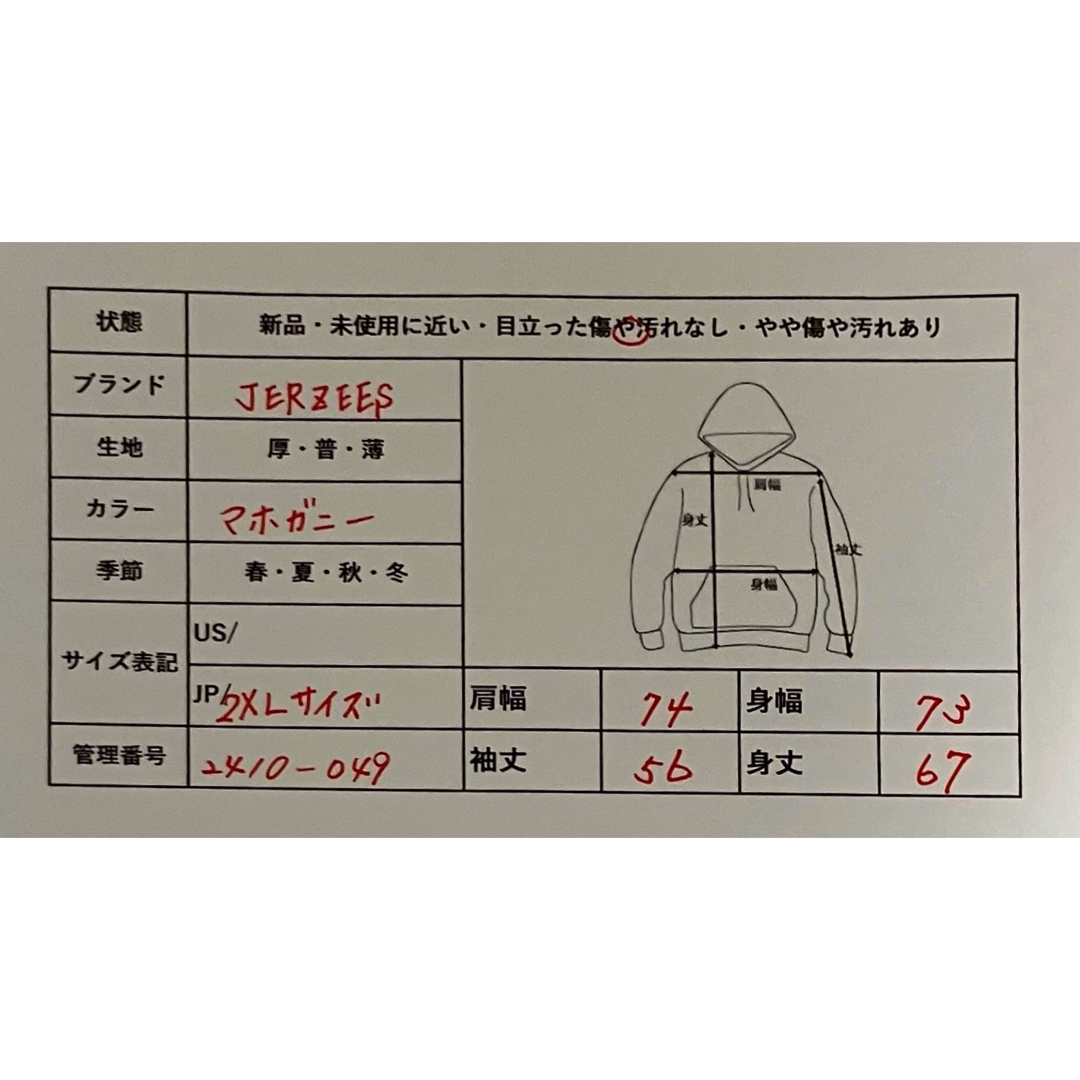 状態 新品・未使用に近い・目立った傷や汚れなし・やや傷や汚れあり
ブランド JERZEES
生地 厚・普・薄
カラー マホガニー
季節 春・夏・秋・冬
サイズ表記 US/
JP/2XLサイズ
管理番号 2410-049
肩幅
身丈
袖丈
身幅
肩幅 74 身幅 73
袖丈 56 身丈 67